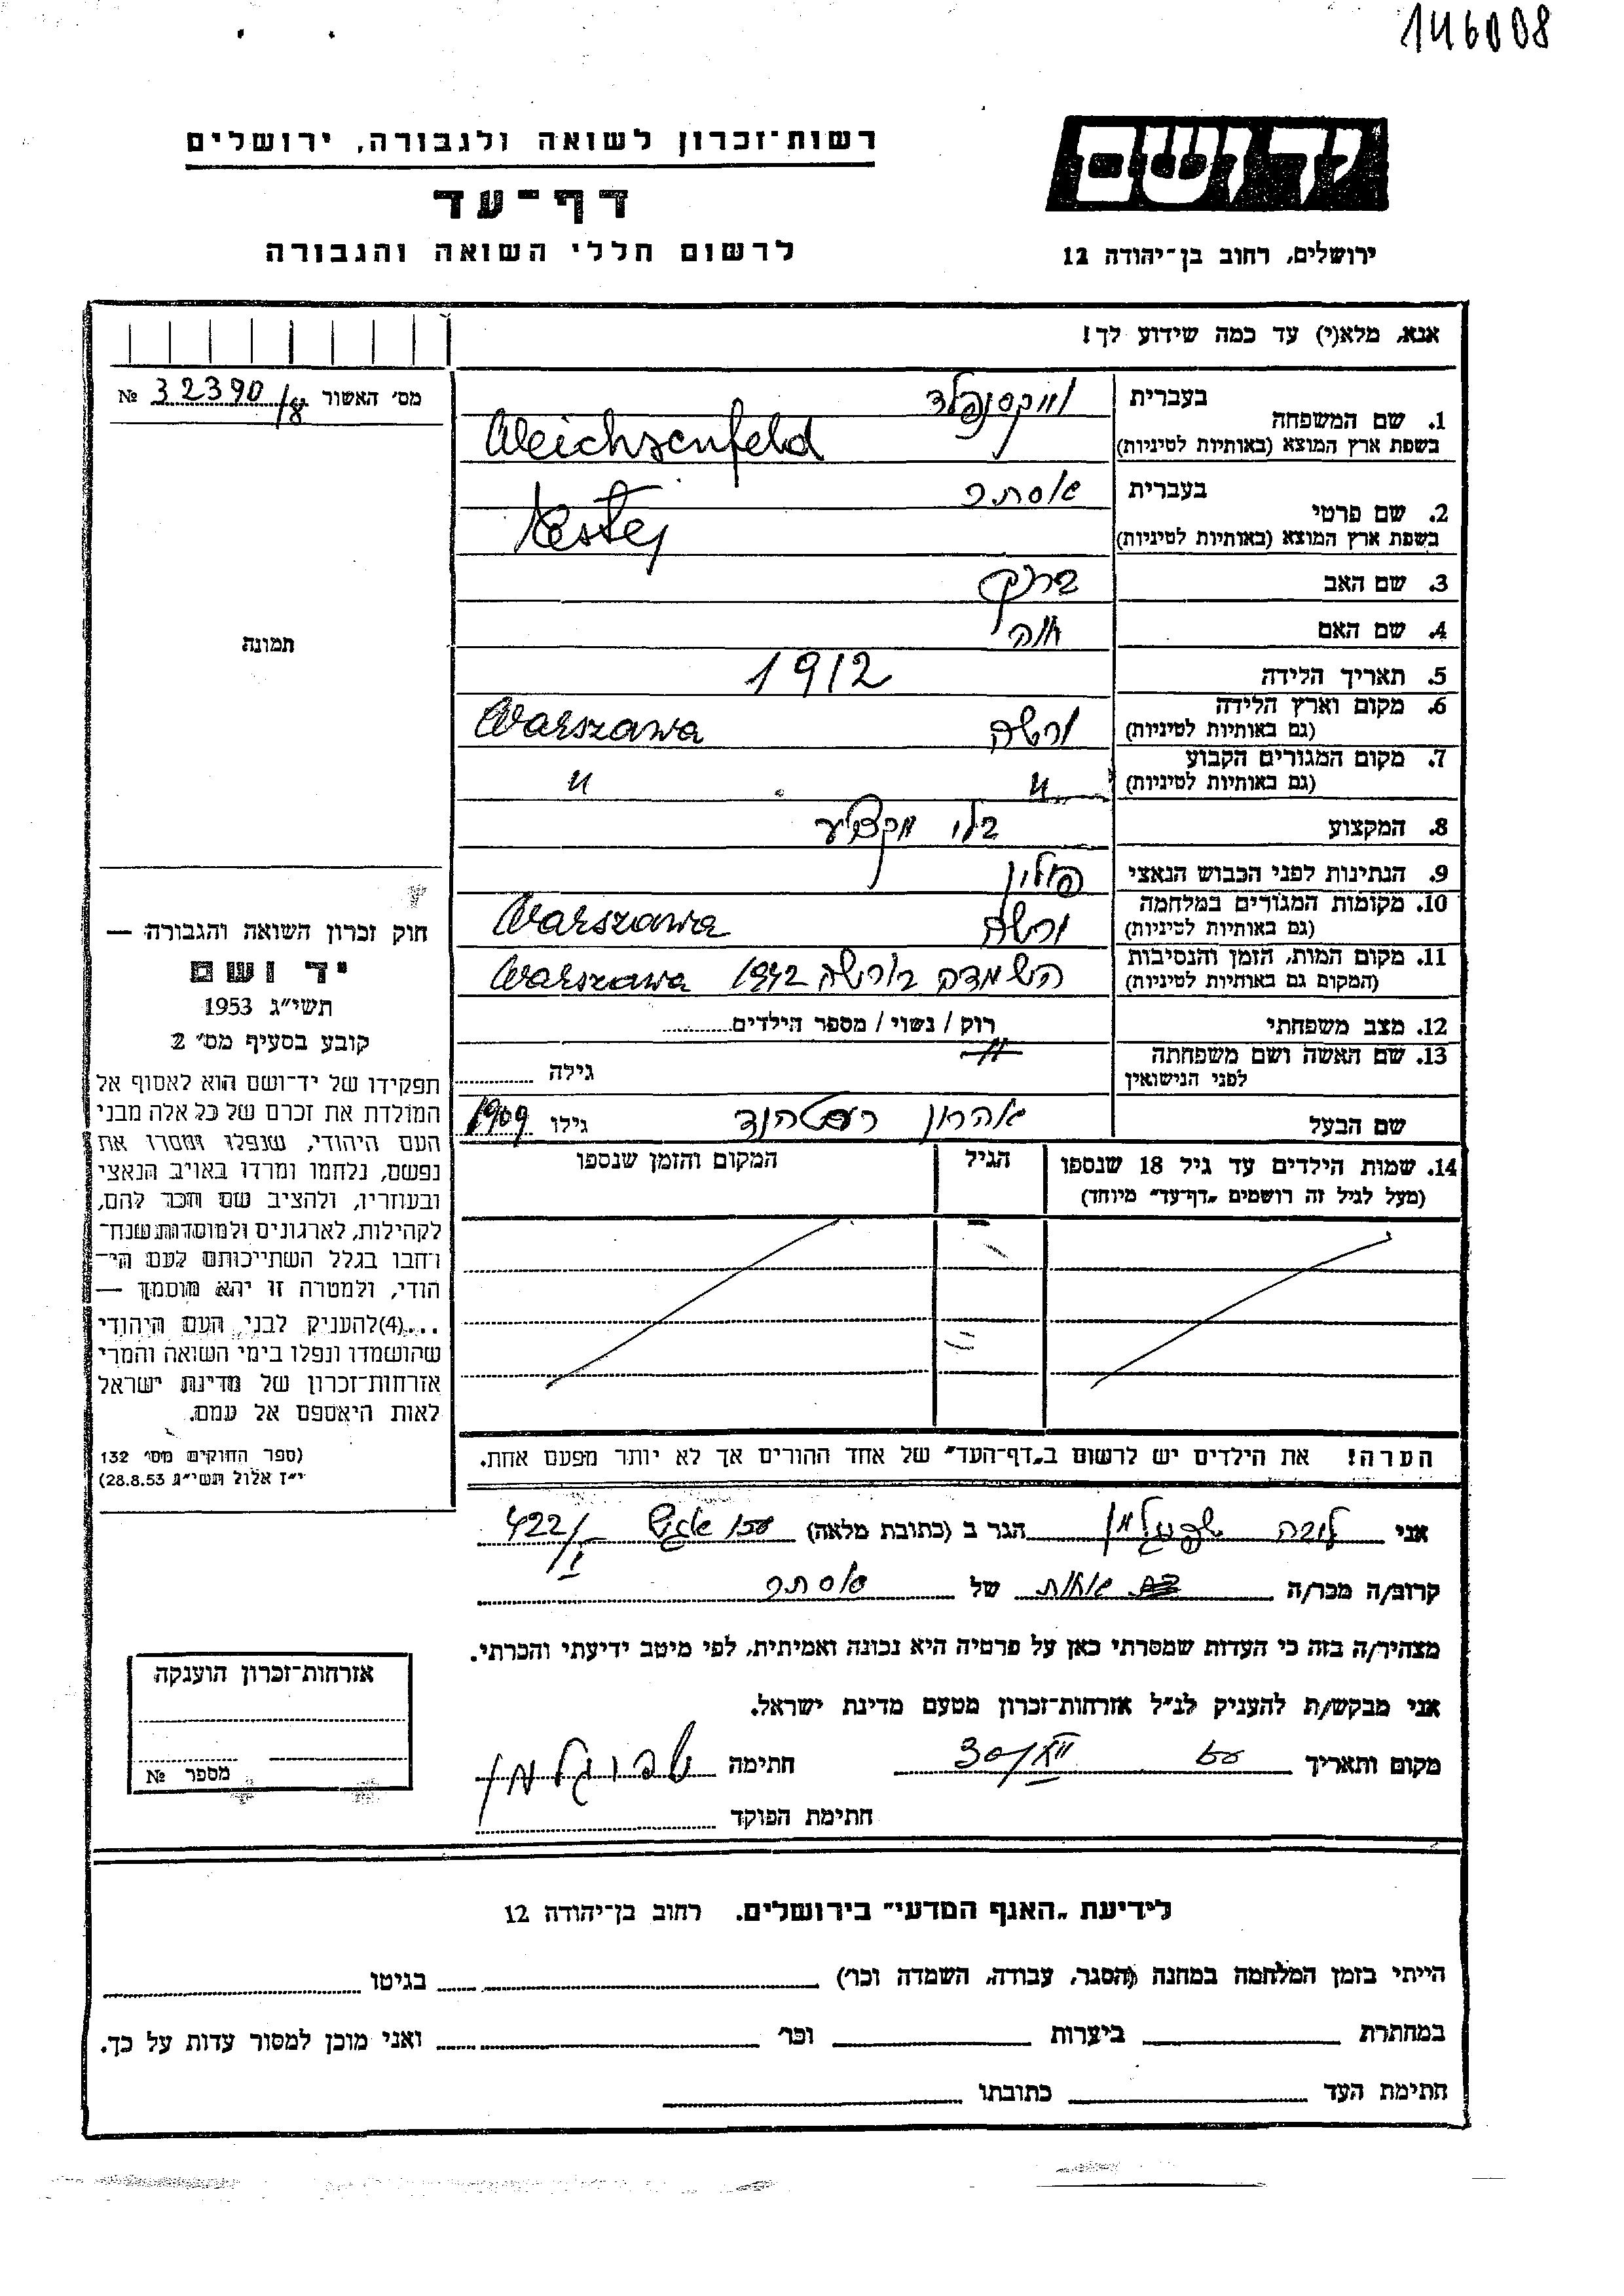 146008
יד ושם
ירושלים, רחוב בן־יהודה 12
רשות־זכרון לשואה ולגבורה, ירושלים
דף־עד
לרשום חללי השואה והגבורה
אנא, מלא(י) עד כמה שידוע לך!
מס׳ האשור 32390/8 №
1. שם המשפחה בעברית וויקסנפלד
בשפת ארץ המוצא (באותיות לטיניות) Weichsenfeld
2. שם פרטי בעברית אסתר
בשפת ארץ המוצא (באותיות לטיניות)
3. שם האב ברוך
4. שם האם חוה
5. תאריך הלידה 1912
6. מקום וארץ הלידה ורשה Warszawa
(גם באותיות לטיניות)
7. מקום המגורים הקבוע " "
(גם באותיות לטיניות)
8. המקצוע בלי מקצוע
9. הנתינות לפני הכבוש הנאצי פולין
10. מקומות המגורים במלחמה ורשה Warszawa
(גם באותיות לטיניות)
11. מקום המות, הזמן והנסיבות השמדה בורשה 1942 Warszawa
(המקום גם באותיות לטיניות)
12. מצב משפחתי רוק / נשוי / מספר הילדים
13. שם האשה ושם משפחתה
לפני הנישואין גילה
שם הבעל אהרון גילו 1909
14. שמות הילדים עד גיל 18 שנספו הגיל המקום והזמן שנספו
(מעל לגיל זה רושמים „דף־עד״ מיוחד)
הערה! את הילדים יש לרשום ב„דף־העד״ של אחד ההורים אך לא יותר מפעם אחת.
תמונה
חוק זכרון השואה והגבורה —
יד ושם
תשי״ג 1953
קובע בסעיף מס׳ 2
תפקידו של יד־ושם הוא לאסוף אל
המולדת את זכרם של כל אלה מבני
העם היהודי, שנפלו ומסרו את
נפשם, נלחמו ומרדו באויב הנאצי
ובעוזריו, ולהציב שם וזכר להם,
לקהילות, לארגונים ולמוסדות שנח־
רחבו בגלל השתייכותם לעם הי־
הודי, ולמטרה זו יהא מוסמך —
...(4)להעניק לבני העם היהודי
שהושמדו ונפלו בימי השואה והמרי
אזרחות־זכרון של מדינת ישראל
לאות היאספם אל עמם.
(ספר החוקים מס׳ 132
י״ז אלול תשי״ג 28.8.53)
אני לובה הגר ב (כתובת מלאה) 422/
קרוב/ה מכר/ה אחות של אסתר
מצהיר/ה בזה כי העדות שמסרתי כאן על פרטיה היא נכונה ואמיתית, לפי מיטב ידיעתי והכרתי.
אני מבקש/ת להעניק לנ״ל אזרחות־זכרון מטעם מדינת ישראל.
מקום ותאריך 30/ חתימה
חתימת הפוקד
אזרחות־זכרון הוענקה
מספר №
לידיעת „האגף המדעי״ בירושלים. רחוב בן־יהודה 12
הייתי בזמן המלחמה במחנה (הסגר, עבודה, השמדה וכו׳) בגיטו
במחתרת ביערות וכו׳ ואני מוכן למסור עדות על כך.
חתימת העד כתובתו